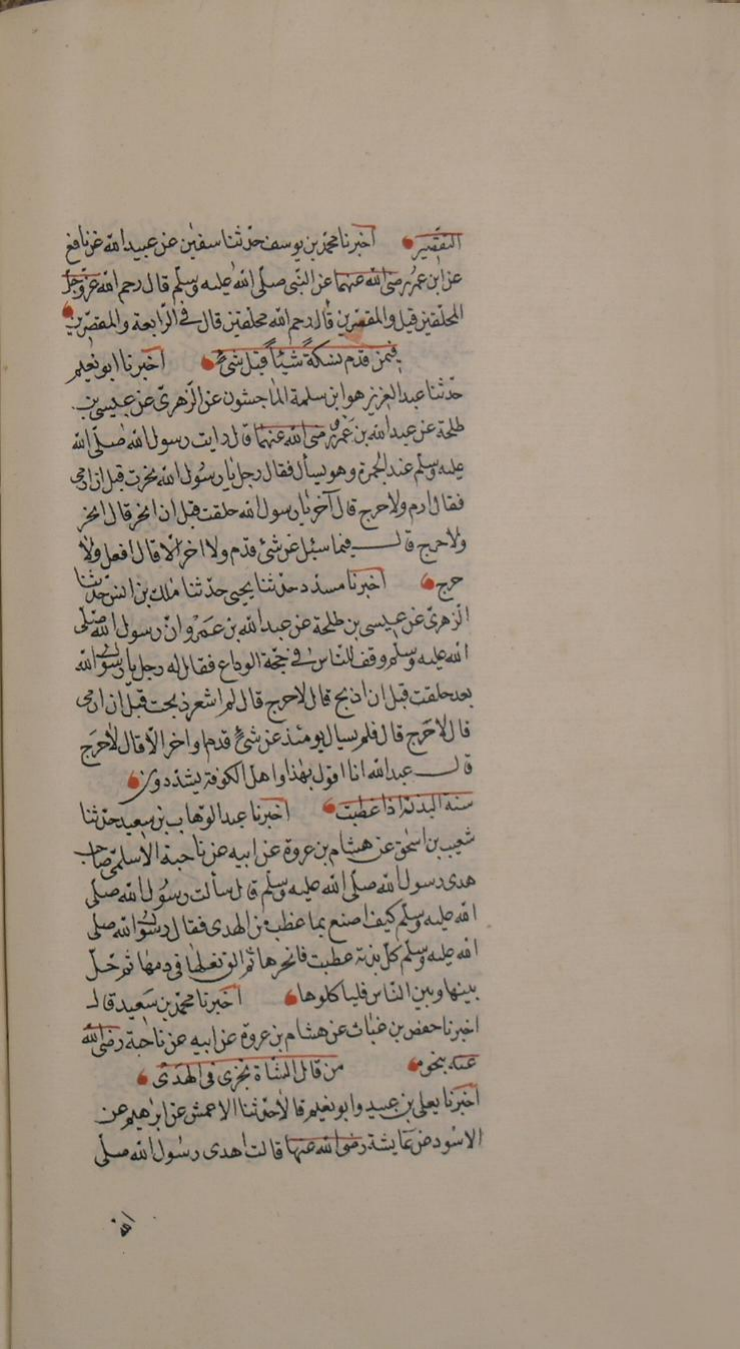 التقصير اخبرنا محمد بن يوسف حدثنا سفين عن عبيد الله عن نافع
عن ابن عمر رضى الله عنهما عن النبى صلّى الله عليه وسلّم قال رحم الله عزوجل
المحلقين قيل والمقصرين قال رحم الله محلقين قال فى الرّابعة والمقصّرين
فيمن قدم نسكة شيئاً قبل شئ اخبرنا ابو نعيم
حدّثنا عبد العزيز هو ابن سلمة الماجشون عن الزهرىّ عن عيسى بن
طلحة عن عبد الله بن عمرو رضى الله عنهما قال رايت رسول الله صلّى الله
عليه وسلم عند الجمرة وهو يسأل فقال رجل يا رسول الله نحرت قبل ان ارمى
فقال ارم ولا حرج قال آخر يا رسول الله حلقت قبل ان انحر قال انحر
ولا حرج قال فما سئل عن شئ قدم ولا اخر الا قال افعل ولا
حرج اخبرنا مسدد حدثنا يحيى حدثنا ملك بن انس حدثنا
الزهرىّ عن عيسى بن طلحة عن عبد الله بن عمرو انّ رسول الله صلّى
الله عليه وسلم وقف للنّاس فى حجّة الوداع فقال له رجل يا رسول الله
بعد حلقت قبل ان اذبح قال لاحرج قال لم اشعر ذبحت قبل ان ارمى
قال لاحرج قال فلم يسال يومئذ عن شئ قدم او اخر الّا قال لاحرج
قال عبد الله انا اقول بهذا واهل الكوفة يشددون
سنة البدنة اذا عطبت اخبرنا عبد الوهاب بن سعيد حدّثنا
شعيب بن اسحق عن هشام بن عروة عن ابيه عن ناجية الاسلمى صاحب
هدى رسول الله صلّى الله عليه وسلّم قال سألت رسول الله صلى
الله عليه وسلم كيف اصنع بما عطب من الهدى فقال رسول الله صلى
الله عليه وسلم كلّ بدنة عطبت فانحرها ثم الق نعلها فى دمها ثم خلّ
بينها وبين النّاس فليأكلوها اخبرنا محمّد بن سعيد قال
اخبرنا حفص بن غياث عن هشام بن عروة عن ابيه عن ناجية رضى الله
عنه بنحوه من قال الشاة تجزى فى الهدى
اخبرنا يعلى بن عبيد وابو نعيم قالا حدثنا الاعمش عن ابرهيم عن
الاسود عن عايشة رضى الله عنها قالت اهدى رسول الله صلّى
الله